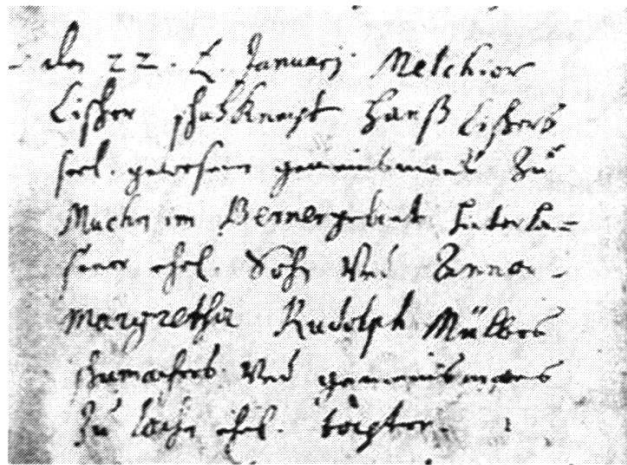 den 22. Januarij Melchior
Lißher schaffknecht Hanß Lißhers
seel. gewesenen gemeinsmans Zu
im Bernergebiet hinterla=
sener ehel. Sohn Und Anna
Margretha Rudolph Müllers
Und gemeinsmans
Zu ehel. tochter.